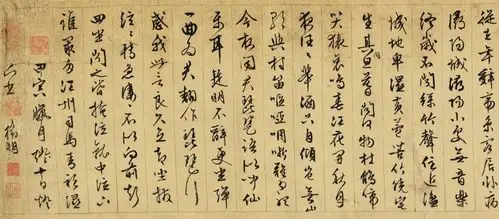 從去年辭帝京謫居臥病
潯陽城潯陽小處無音樂
終歲不聞絲竹聲住近湓
城地卑濕黃蘆苦竹繞宅
生其間旦暮聞何物杜鵑啼
哀鳴春江花朝秋月
夜往往自傾豈無山
歌與村笛嘔啞嘲哳難為聽
今夜聞君琵琶語如聽仙
樂耳暫明莫辭更坐彈
一曲為君翻作琵琶行
感我此言良久立却坐
弦弦轉急凄凄不似向前聲
四坐聞之皆掩泣就中泣下
誰最多江州司馬青衫濕
甲寅臘月
徵明